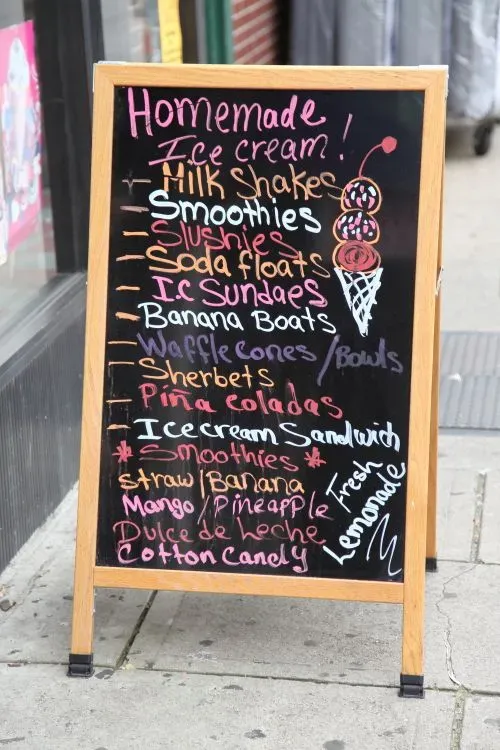 Homemade
Ice cream!
- Milk Shakes
- Smoothies
- Slushies
- Soda floats
- I.C Sundaes
- Banana Boats
- Waffle cones / Bowls
- Sherbets
- Piña coladas
- Ice cream Sandwich
* Smoothies *
Straw / Banana
Mango / Pineapple
Dulce de Leche
Cotton Candy
Fresh
Lemonade